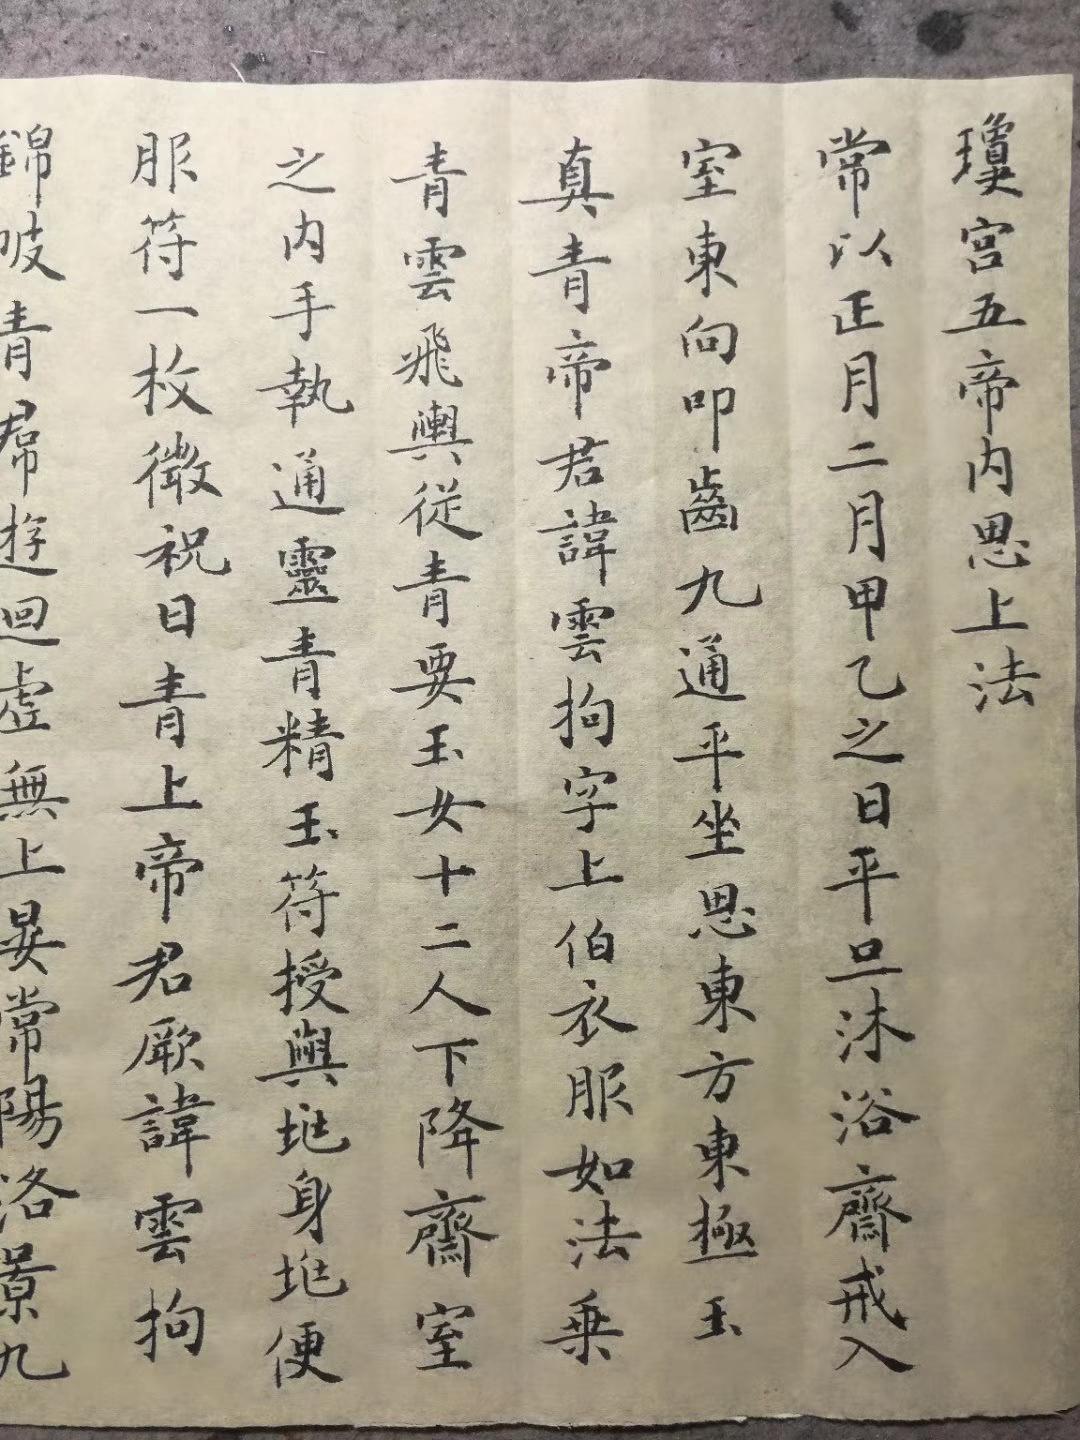 瓊宮五帝内思上法
常以正月二月甲乙之日平旦沐浴齋戒入
室東向叩齒九通平坐思東方東極玉
真青帝君諱雲拘字上伯衣服如法乗
青雲飛輿從青要玉女十二人下降齋室
之内手執通靈青精玉符授與兆身兆便
服符一枚微祝曰青上帝君厥諱雲拘
錦帔青帬遊迴虛無上晏常陽洛景九